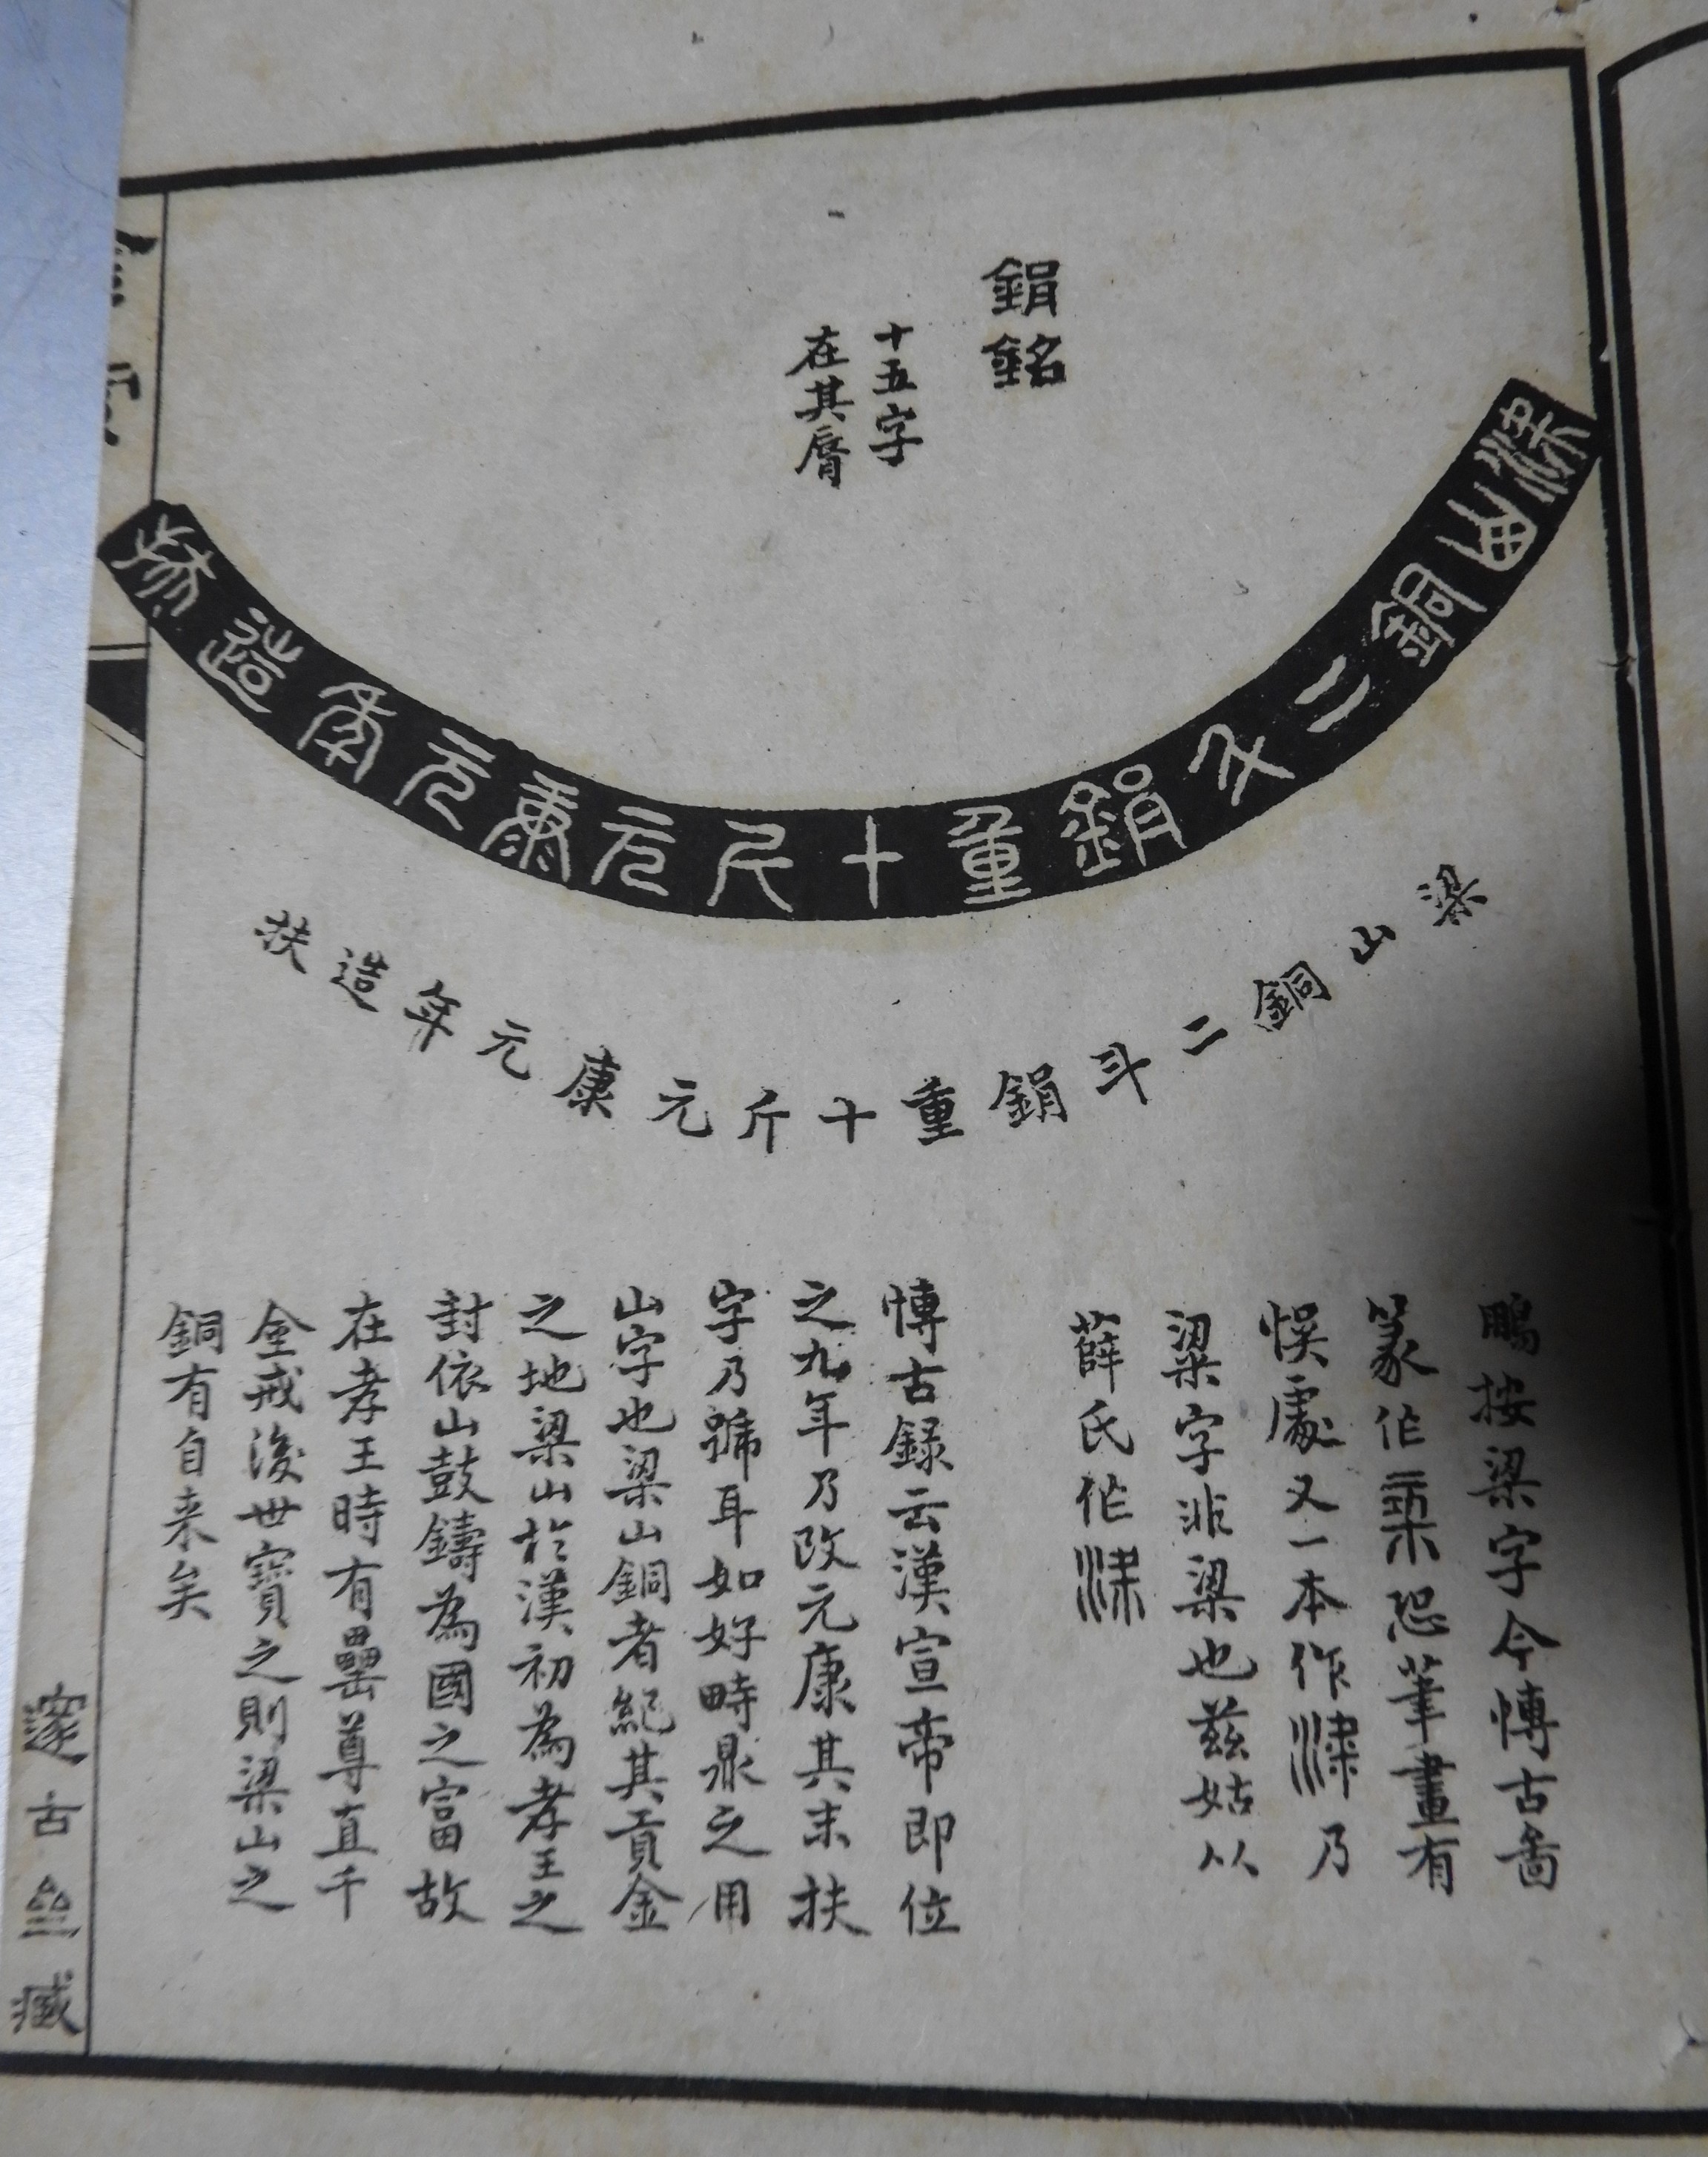 鋗銘
十五字
在其脣
梁山銅二斗鋗重十斤元康元年造扶
梁山銅二斗鋗重十斤元康元年造扶
鵬按梁字今博古啚
篆作
恐筆畫有
悮處又一本作
乃
梁字非梁也兹姑以
薛氏作
博古録云漢宣帝即位
之九年乃改元康其末扶
字乃號耳如好畤鼎之用
山字也梁山銅者紀其貢金
之地梁山於漢初為孝王之
封依山鼓鑄為國之富故
在孝王時有罍尊直千
金戒後世寶之則梁山之
銅有自来矣
邃古盦臧